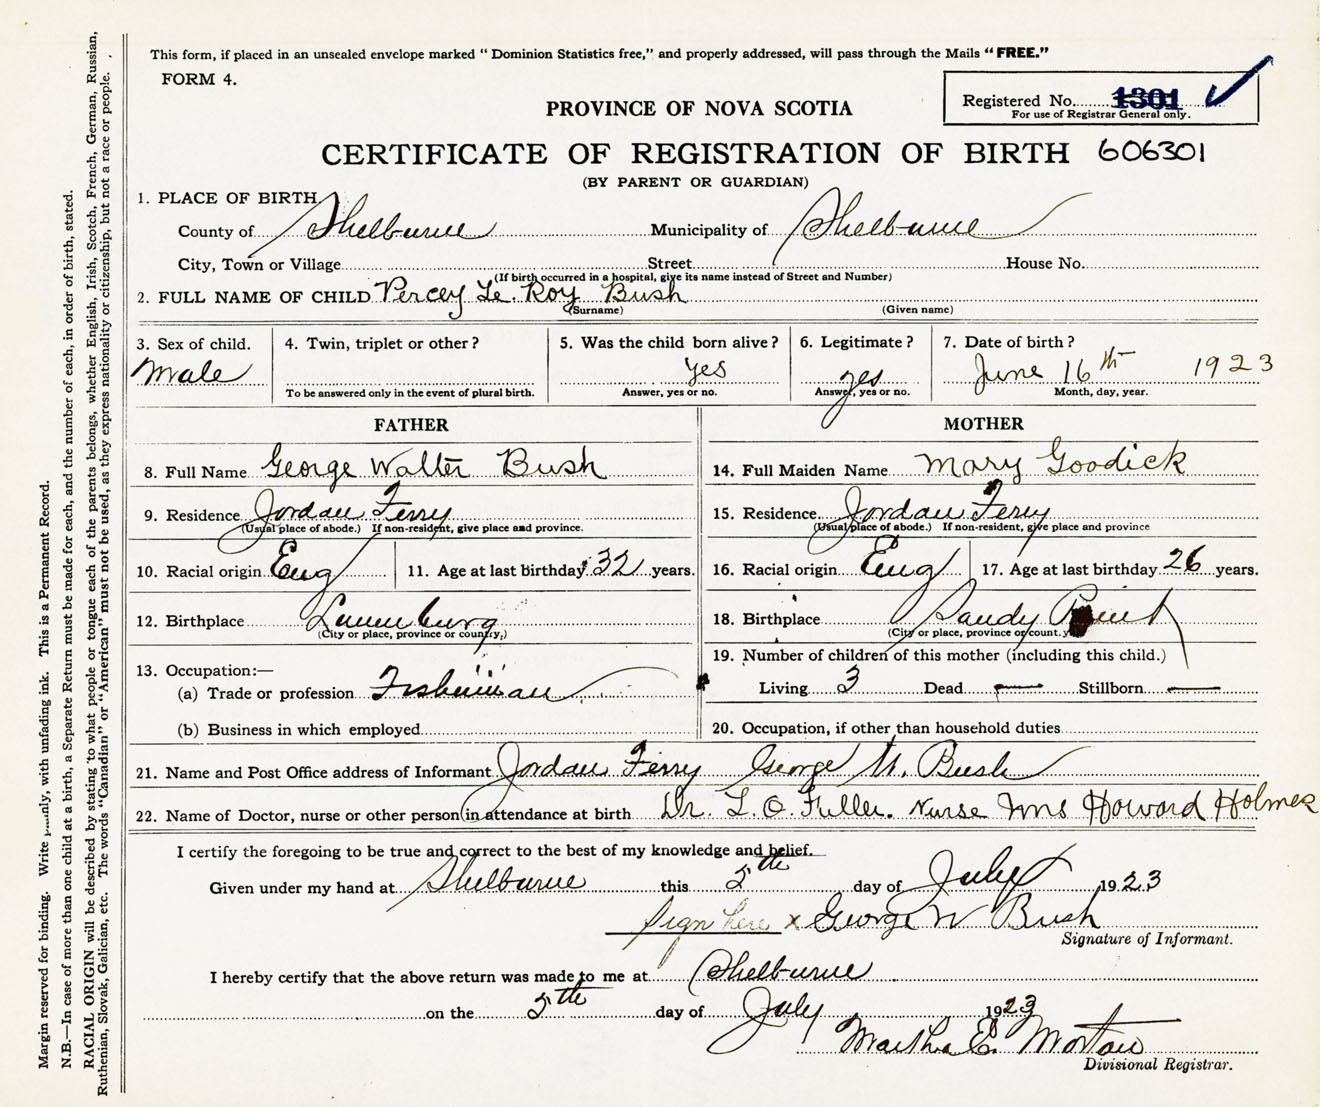 This form, if placed in an unsealed envelope marked "Dominion Statistics free," and properly addressed, will pass through the Mails "FREE."
FORM 4.
Registered No. 1301
For use of Registrar General only.
PROVINCE OF NOVA SCOTIA
CERTIFICATE OF REGISTRATION OF BIRTH 606301
(BY PARENT OR GUARDIAN)
1. PLACE OF BIRTH
County of Shelburne Municipality of Shelburne
City, Town or Village Street House No.
(If birth occurred in a hospital, give its name instead of Street and Number)
2. FULL NAME OF CHILD Percey Le. Roy Bush
(Surname) (Given name)
3. Sex of child. 4. Twin, triplet or other? 5. Was the child born alive? 6. Legitimate? 7. Date of birth?
Male yes yes June 16th 1923
To be answered only in the event of plural birth. Answer, yes or no. Answer, yes or no. Month, day, year.
FATHER MOTHER
8. Full Name George Walter Bush 14. Full Maiden Name Mary Goodick
9. Residence Jordan Ferry 15. Residence Jordan Ferry
(Usual place of abode.) If non-resident, give place and province. (Usual place of abode.) If non-resident, give place and province
10. Racial origin Eng 11. Age at last birthday 32 years. 16. Racial origin Eng 17. Age at last birthday 26 years.
12. Birthplace Lunenburg 18. Birthplace Sandy Point
(City or place, province or country.) (City or place, province or country)
13. Occupation:— 19. Number of children of this mother (including this child.)
(a) Trade or profession Fisherman Living 3 Dead — Stillborn —
(b) Business in which employed 20. Occupation, if other than household duties
21. Name and Post Office address of Informant Jordan Ferry George W. Bush
22. Name of Doctor, nurse or other person in attendance at birth Dr. L. O. Fuller. Nurse Mrs Howard Holmes
I certify the foregoing to be true and correct to the best of my knowledge and belief.
Given under my hand at Shelburne this 5th day of July 1923
Sign here x George W Bush
Signature of Informant.
I hereby certify that the above return was made to me at Shelburne
on the 5th day of July 1923
Martha E. Morton
Divisional Registrar.
Margin reserved for binding. Write plainly, with unfading ink. This is a Permanent Record.
N.B.—In case of more than one child at a birth, a Separate Return must be made for each, and the number of each, in order of birth, stated.
RACIAL ORIGIN will be described by stating to what people or tongue each of the parents belongs, whether English, Irish, Scotch, French, German, Russian,
Ruthenian, Slovak, Galician, etc. The words "Canadian" or "American" must not be used, as they express nationality or citizenship, but not a race or people.